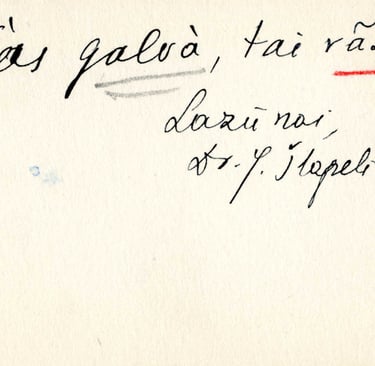 às galvà, tai rã
Lazūnai,
Dr. J. Šlapeli